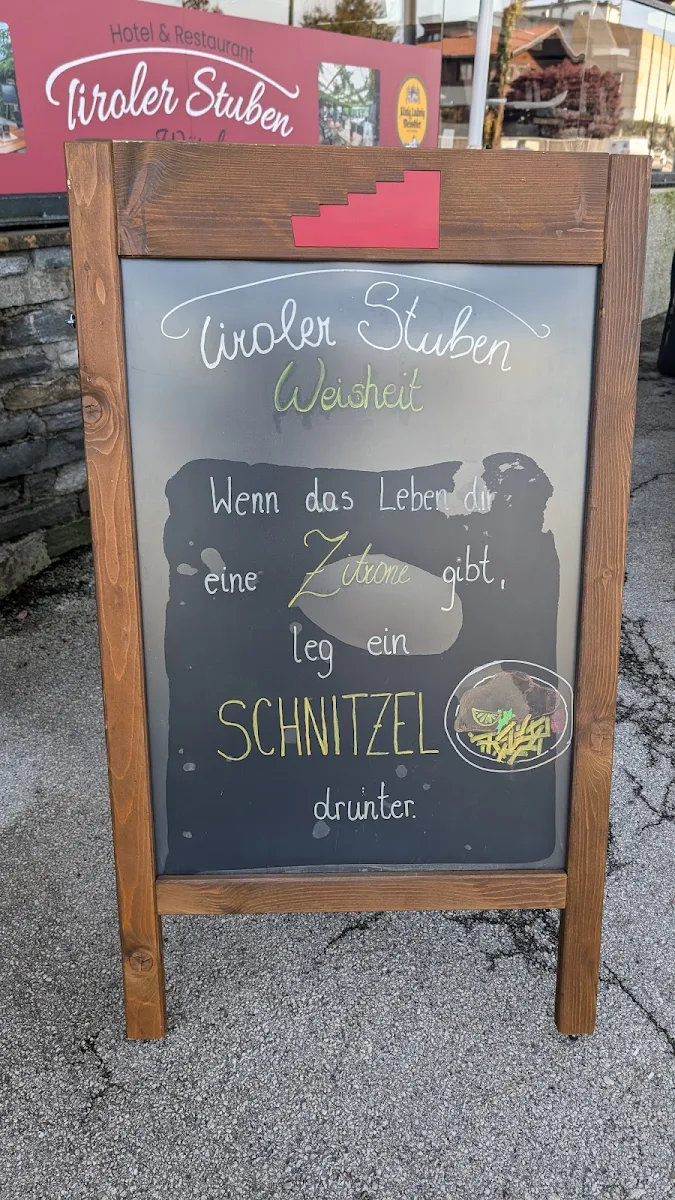 Hotel & Restaurant
Tiroler Stuben
König Ludwig
Weissbier
Tiroler Stuben
Weisheit
Wenn das Leben dir
eine Zitrone gibt,
leg ein
SCHNITZEL
drunter.